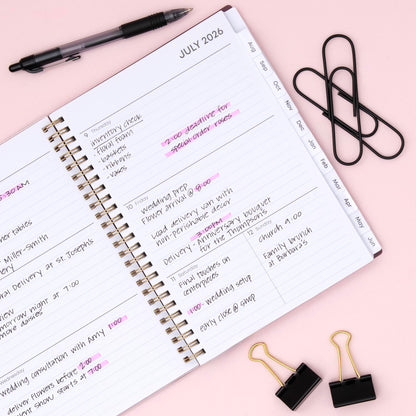 JULY 2026
9 Thursday
inventory check
· floral foam
· baskets
· ribbons
· vases
2:00 deadline for
special-order roses
10 Friday
wedding prep
Flower arrival @ 8:00
Load delivery van with
non-perishable decor
3:00PM
Delivery - Anniversary bouquet
for the Thompsons
11 Saturday
Final touches on
centerpieces
1:00 - wedding setup
early close @ 5mp
12 Sunday
church 9:00
Family brunch
at Barbara's
Aug
Sep
Oct
Nov
Dec
Jan
Feb
Mar
Apr
May
Jun
:30AM
tables
Miller-Smith
Delivery at St. Josephs
night at 7:00
more daisies
Wednesday
wedding consultation with Amy 1:00
deliver flowers before 2:00
event show starts at 7:00